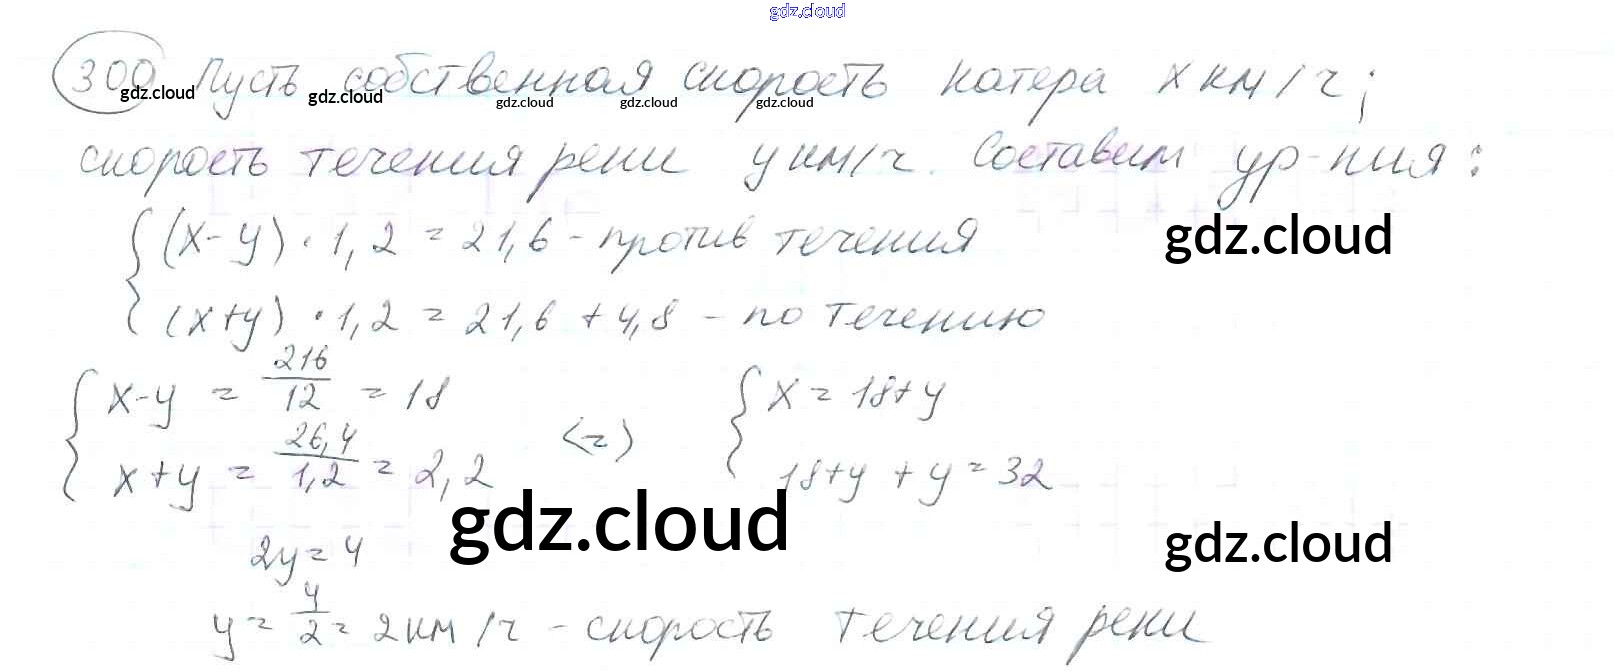 gdz.cloud
309 Пусть собственная скорость катера x км/ч;
gdz.cloud gdz.cloud gdz.cloud gdz.cloud gdz.cloud
скорость течения реки y км/ч. Составим ур-ния:
(x-y) · 1,2 = 21,6 - против течения
gdz.cloud
(x+y) · 1,2 = 21,6 + 4,8 - по течению
x-y = 216/12 = 18 x = 18+y
x+y = 26,4/1,2 = 2,2 <=> 18+y + y = 32
gdz.cloud
gdz.cloud
2y = 4
y = 4/2 = 2 км/ч - скорость течения реки